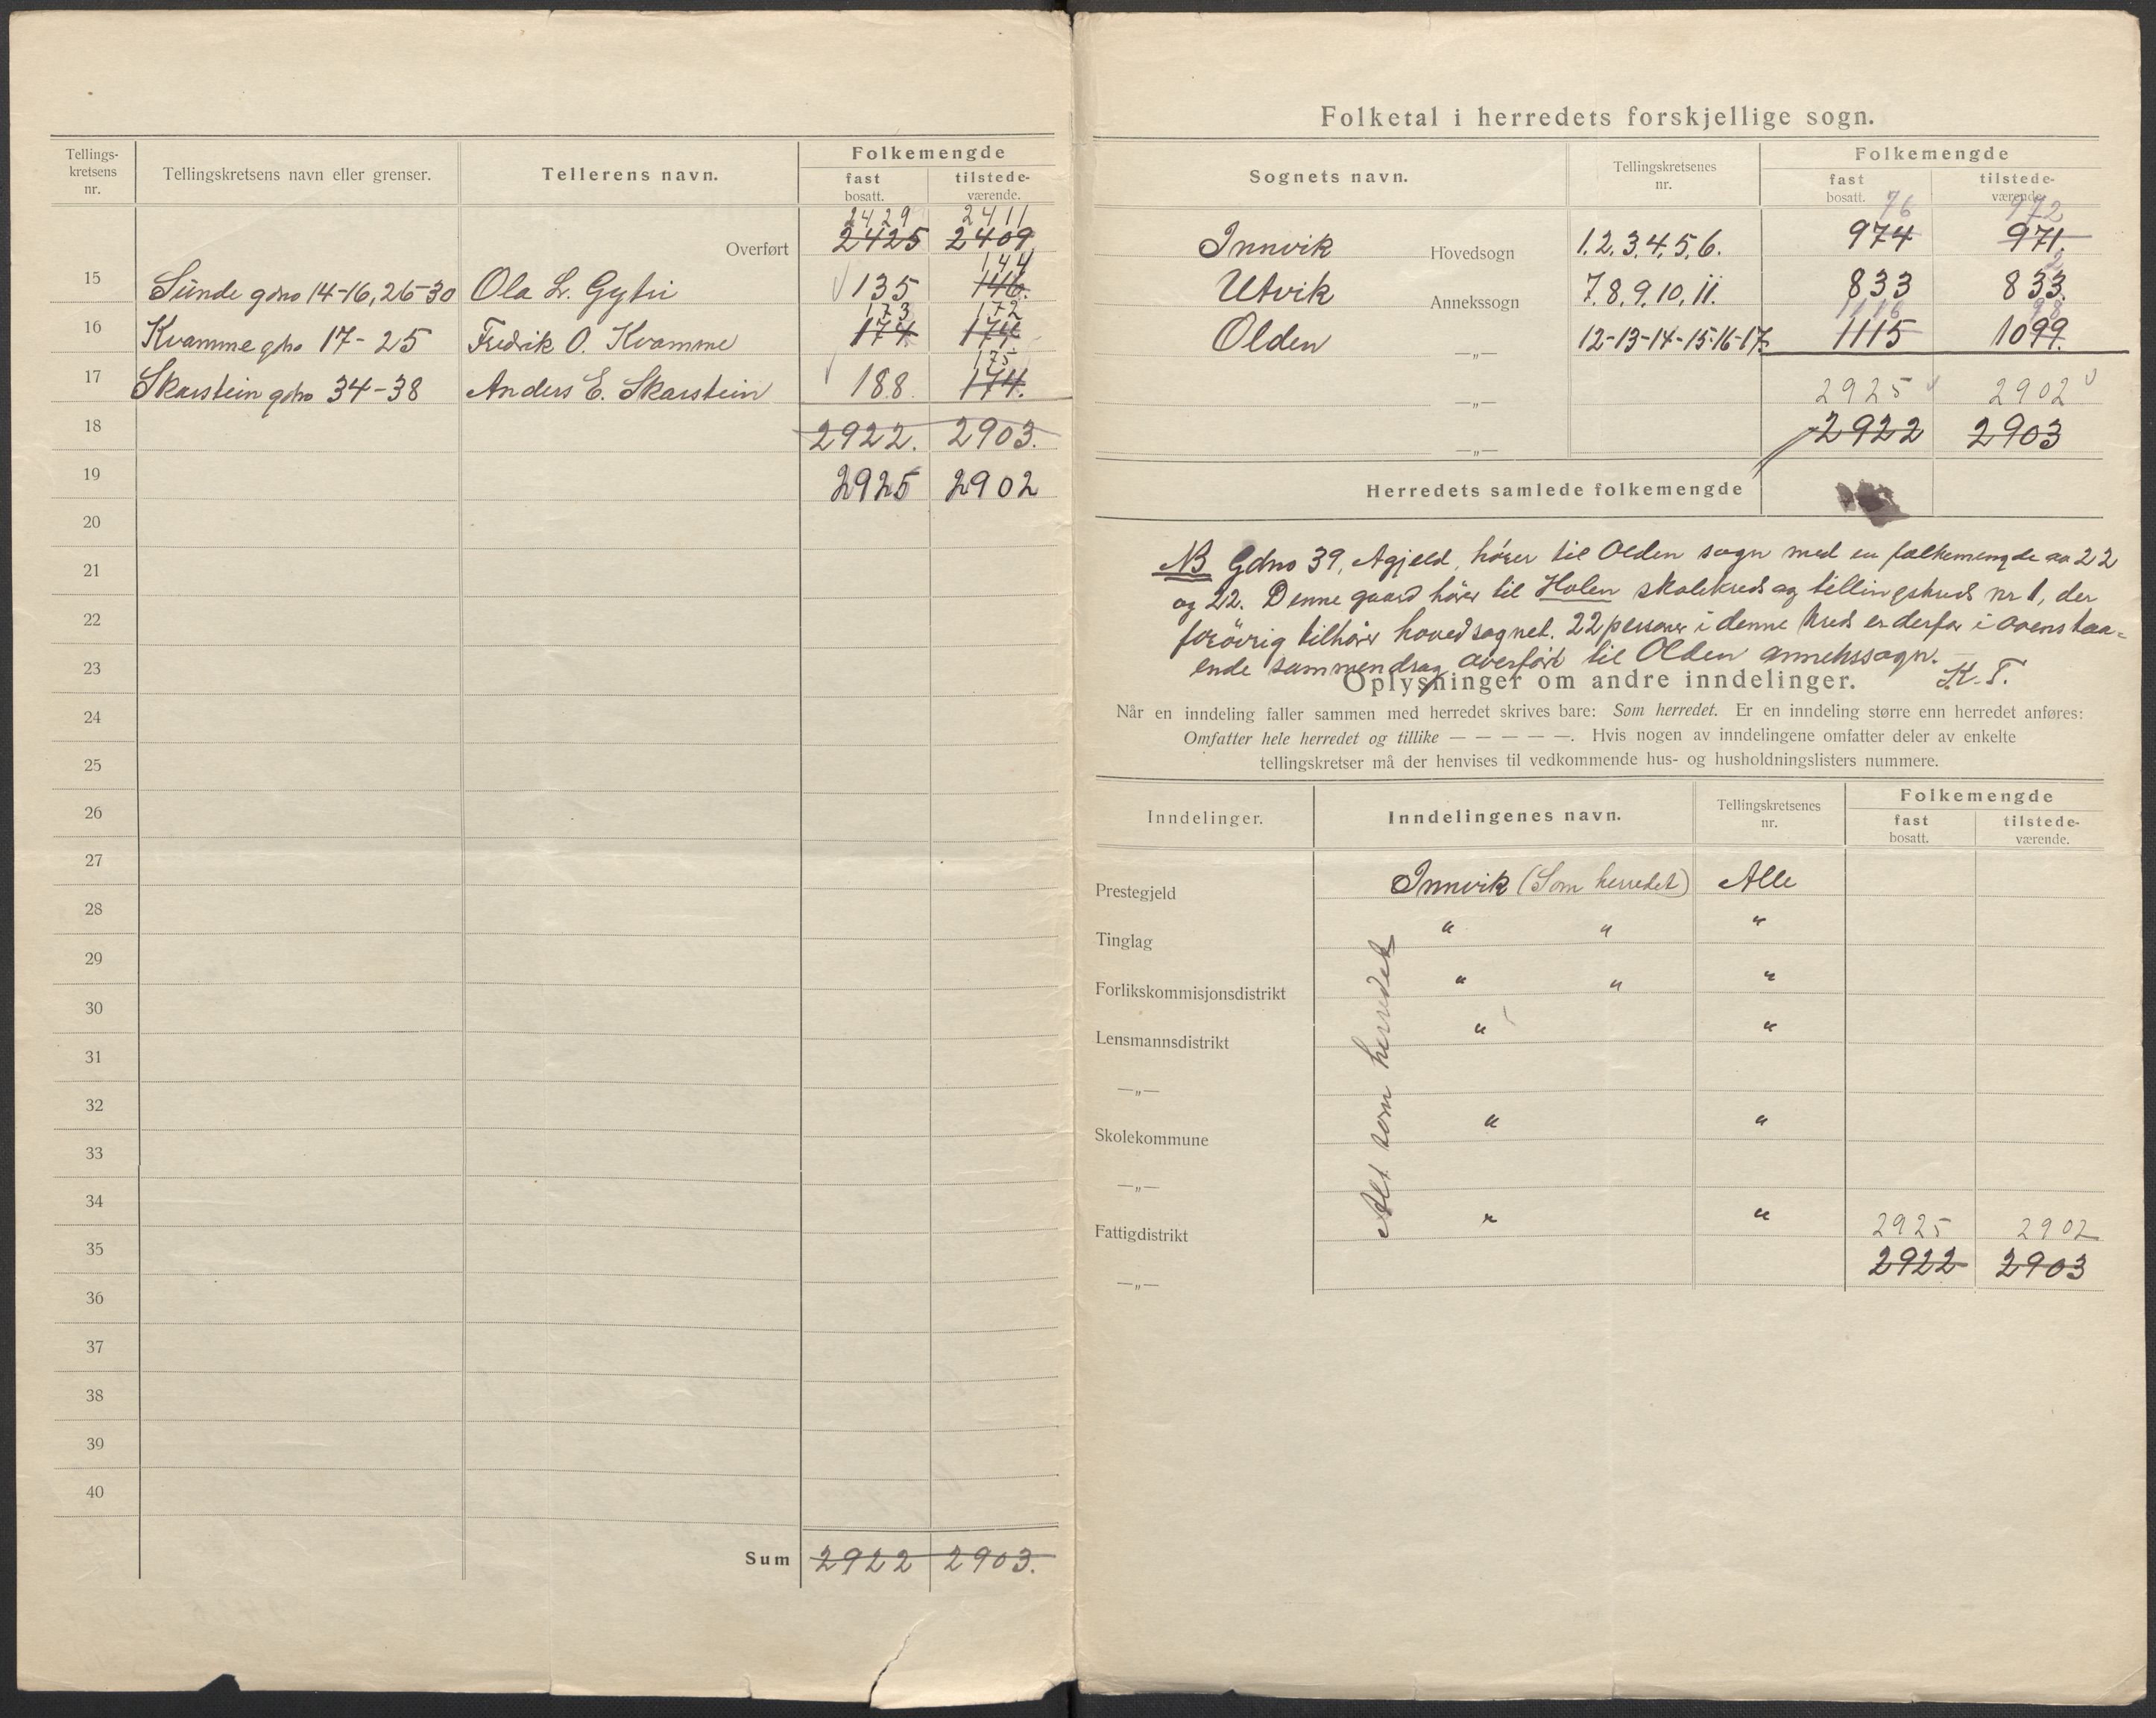 Tellings-
kretsens
nr.
Tellingskretsens navn eller grenser.
Tellerens navn.
Folkemengde
fast
bosatt.
tilstede-
værende.
2429 2411
Overført 2425 2409
144
15 Sunde gdno 14-16, 26-30 Ola L. Gytri 135 146.
173 172
16 Kvamme gdno 17-25 Fredrik O. Kvamme 174 174.
175
17 Skarstein gdno 34-38 Anders E. Skarstein 188. 174.
18 2922. 2903.
19 2925 2902
20
21
22
23
24
25
26
27
28
29
30
31
32
33
34
35
36
37
38
39
40
Sum 2922 2903.
Folketal i herredets forskjellige sogn.
Sognets navn.
Tellingskretsenes
nr.
Folkemengde
fast
bosatt.
tilstede-
værende.
76 972
Innvik Hovedsogn 1.2.3.4.5.6. 974 971.
2
Utvik Annekssogn 7.8.9.10.11. 833 833.
1116 98
Olden —„— 12-13-14-15-16-17. 1115 1099.
—„— 2925 2902
—„— 2922 2903
Herredets samlede folkemengde
NB Gdno 39, Agjeld, hører til Olden sogn med en folkemengde av 22
og 22. Denne gaard hører til Holen skolekreds og tellingskreds nr 1, der
forøvrig tilhører hovedsognet. 22 personer i denne kreds er derfor i ovenstaa-
ende sammendrag overført til Olden annekssogn.
K. T.
Oplysninger om andre inndelinger.
Når en inndeling faller sammen med herredet skrives bare: Som herredet. Er en inndeling større enn herredet anføres:
Omfatter hele herredet og tillike — — — — —. Hvis nogen av inndelingene omfatter deler av enkelte
tellingskretser må der henvises til vedkommende hus- og husholdningslisters nummere.
Inndelinger.
Inndelingenes navn.
Tellingskretsenes
nr.
Folkemengde
fast
bosatt.
tilstede-
værende.
Prestegjeld Innvik (Som herredet) Alle
Tinglag " " "
Forlikskommisjonsdistrikt " " "
Lensmannsdistrikt " "
—„—
Skolekommune " "
—„—
Fattigdistrikt " " 2925 2902
—„— 2922 2903
Alt som herredet